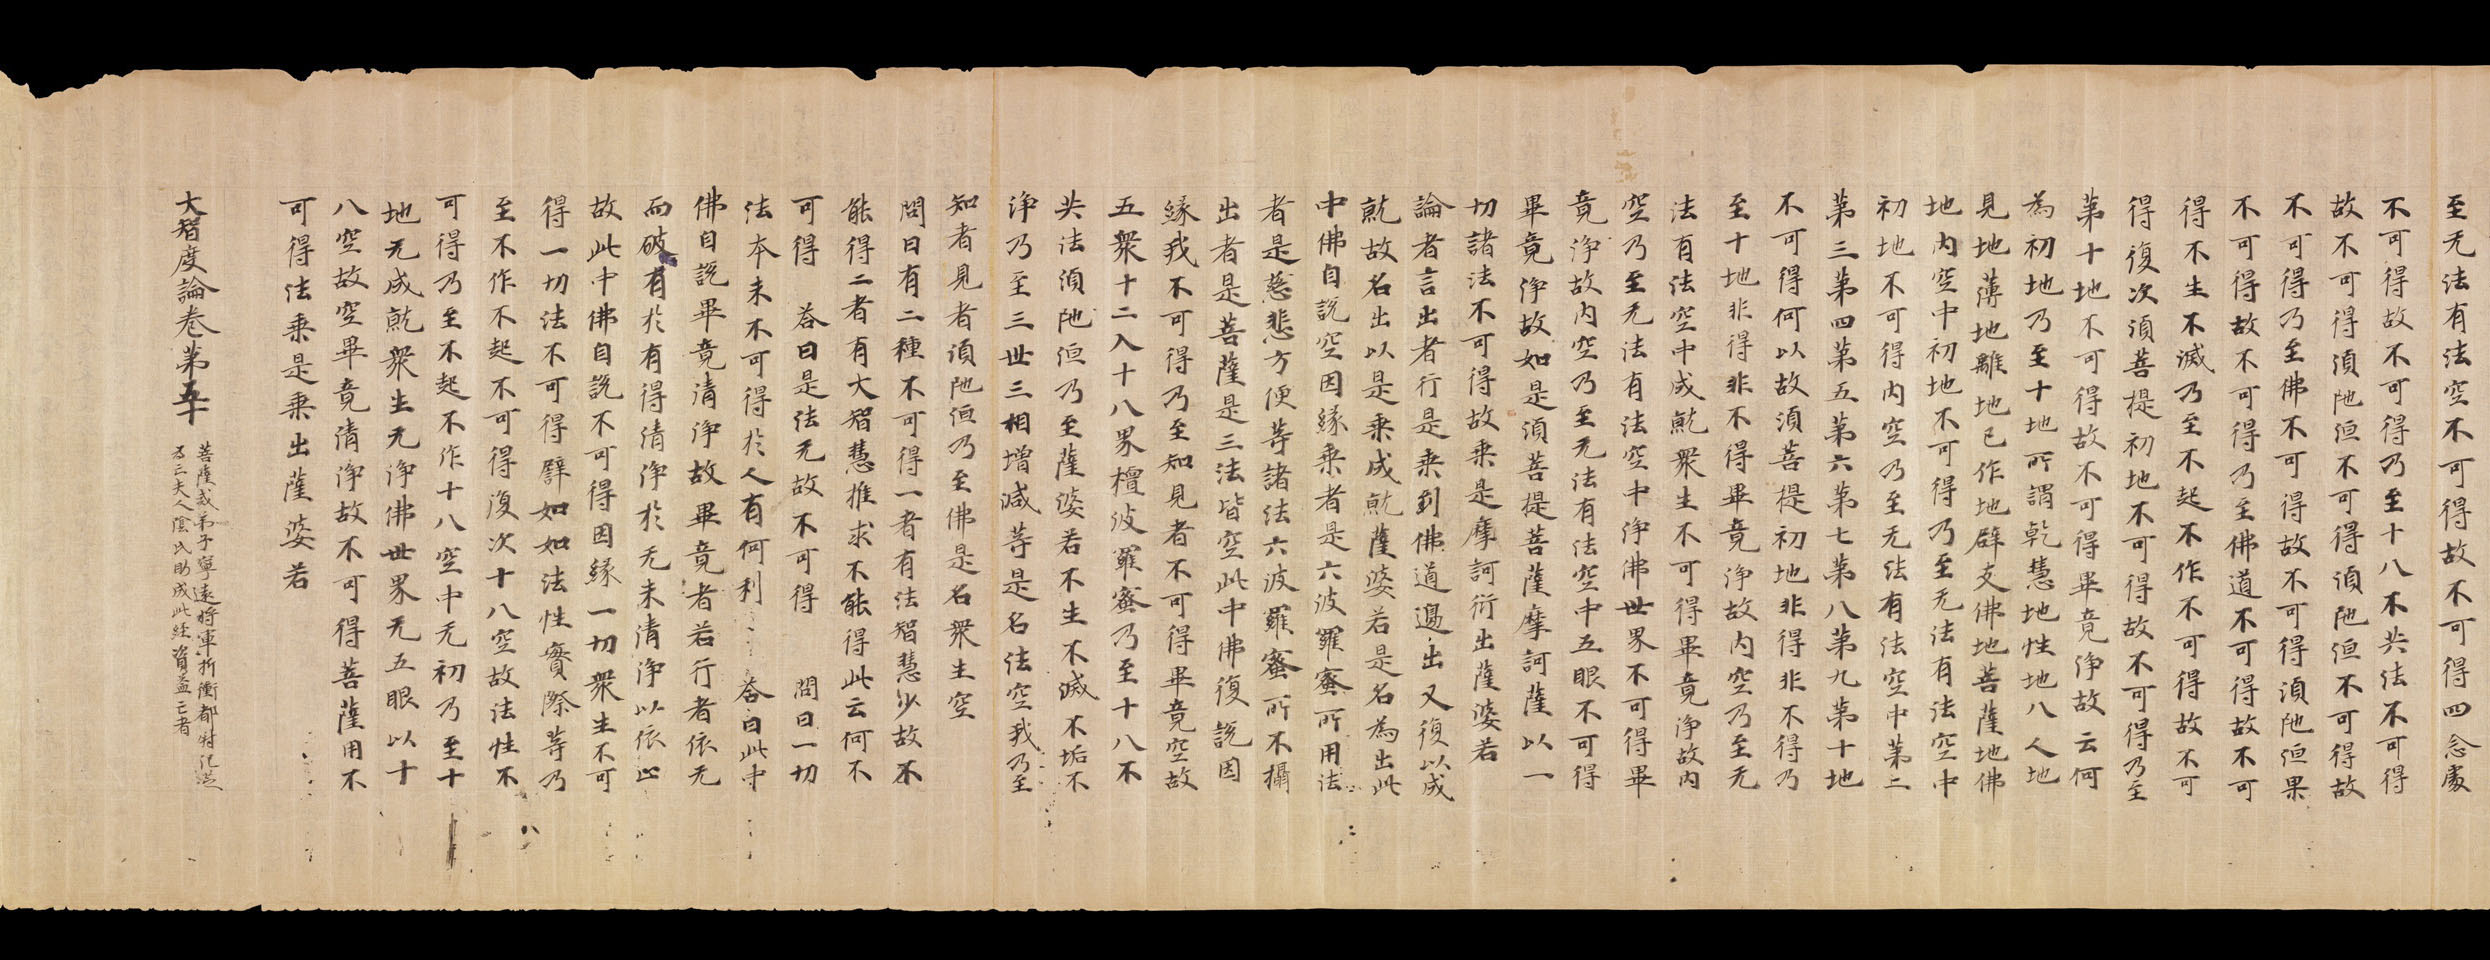 至无法有法空不可得故不可得四念處
不可得故不可得乃至十八不共法不可得
故不可得須陁洹不可得須陁洹不可得故
不可得乃至佛不可得故不可得須陁洹果
不可得故不可得乃至佛道不可得故不可
得不生不滅乃至不起不作不可得故不可
得復次須菩提初地不可得故不可得乃至
第十地不可得故不可得畢竟淨故云何
為初地乃至十地所謂乾慧地性地八人地
見地薄地離地已作地辟支佛地菩薩地佛
地內空中初地不可得乃至无法有法空中
初地不可得內空乃至无法有法空中第二
第三第四第五第六第七第八第九第十地
不可得何以故須菩提初地非得非不得乃
至十地非得非不得畢竟淨故內空乃至无
法有法空中成就衆生不可得畢竟淨故內
空乃至无法有法空中淨佛世界不可得畢
竟淨故內空乃至无法有法空中五眼不可得
畢竟淨故如是須菩提菩薩摩訶薩以一
切諸法不可得故乘是摩訶衍出薩婆若
論者言出者行是乘到佛道邊出又復以成
就故名出以是乘成就薩婆若是名為出此
中佛自說空因緣乘者是六波羅蜜所用法
者是慈悲方便等諸法六波羅蜜所不攝
出者是菩薩是三法皆空此中佛復說因
緣我不可得乃至知見者不可得畢竟空故
五衆十二入十八界檀波羅蜜乃至十八不
共法須陁洹乃至薩婆若不生不滅不垢不
淨乃至三世三相增減等是名法空我乃至
知者見者須陁洹乃至佛是名衆生空
問曰有二種不可得一者有法智慧少故不
能得二者有大智慧推求不能得此云何不
可得 荅曰是法无故不可得 問曰一切
法本末不可得於人有何利 荅曰此中
佛自說畢竟清淨故畢竟者若行者依无
而破有於有得清淨於无未清淨以依止
故此中佛自說不可得因緣一切衆生不可
得一切法不可得譬如如法性實際等乃
至不作不起不可得復次十八空故法性不
可得乃至不起不作十八空中无初乃至十
地无成就衆生无淨佛世界无五眼以十
八空故空畢竟清淨故不可得菩薩用不
可得法乘是乘出薩婆若
大智度論卷第五十
菩薩戒弟子寧遠將軍折衝都尉
為亡夫人陰氏助成此經資益亡者